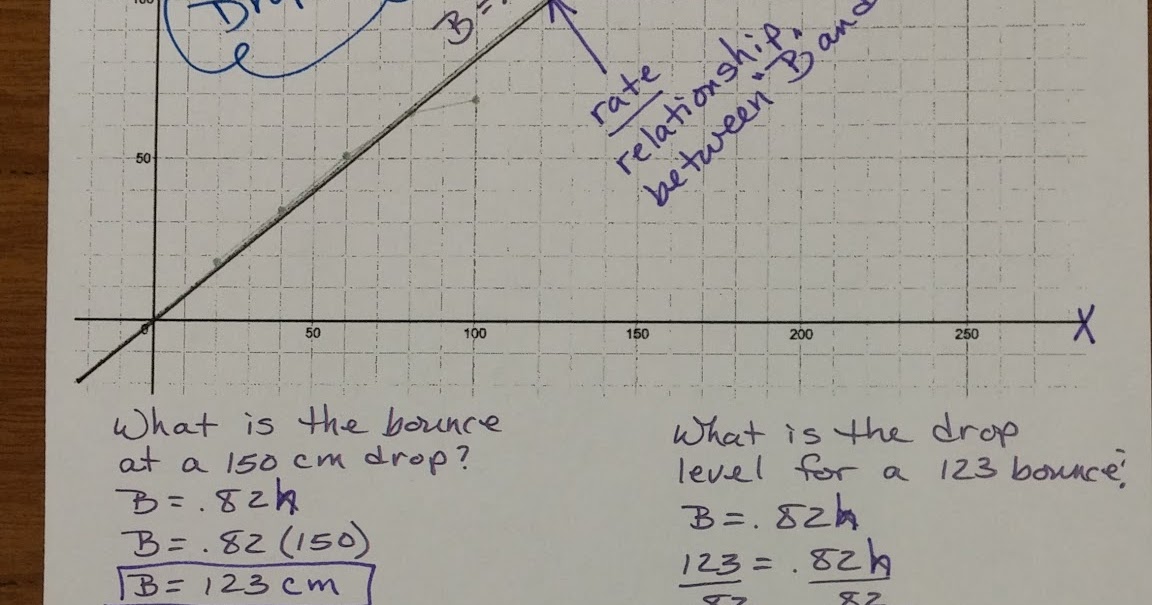 100
B = .
rate
relationship
between "B and
50
0
50
100
150
200
250
X
What is the bounce
at a 150 cm drop?
B = .82h
B = .82 (150)
B = 123 cm
What is the drop
level for a 123 bounce?
B = .82h
123 = .82h
.82 .82